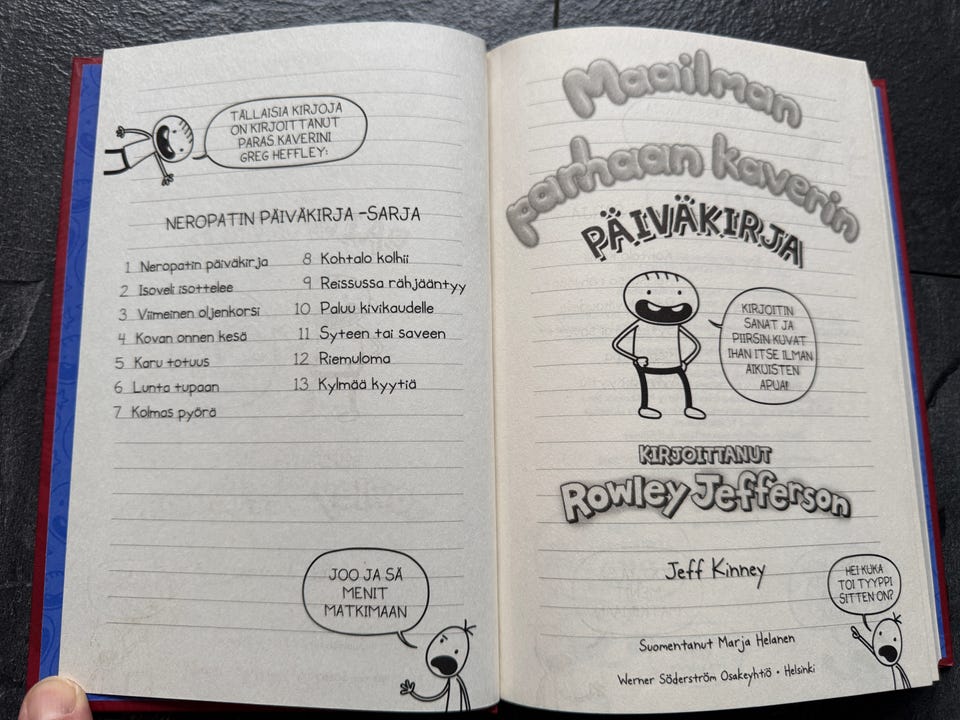 TÄLLAISIA KIRJOJA
ON KIRJOITTANUT
PARAS KAVERINI
GREG HEFFLEY:
NEROPATIN PÄIVÄKIRJA -SARJA
1 Neropatin päiväkirja
2 Isoveli isottelee
3 Viimeinen oljenkorsi
4 Kovan onnen kesä
5 Karu totuus
6 Lunta tupaan
7 Kolmas pyörä
8 Kohtalo kolhii
9 Reissussa rähjääntyy
10 Paluu kivikaudelle
11 Syteen tai saveen
12 Riemuloma
13 Kylmää kyytiä
JOO JA SÄ
MENIT
MATKIMAAN
Maailman
parhaan kaverin
PÄIVÄKIRJA
KIRJOITIN
SANAT JA
PIIRSIN KUVAT
IHAN ITSE ILMAN
AIKUISTEN
APUA!
KIRJOITTANUT
Rowley Jefferson
Jeff Kinney
HEI KUKA
TOI TYYPPI
SITTEN ON?
Suomentanut Marja Helanen
Werner Söderström Osakeyhtiö • Helsinki